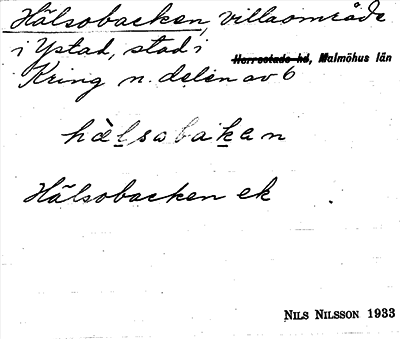 Hälsobacken, villaområde
i Ystad, stad i
Herrestads hd, Malmöhus län
Kring n. delen av 6
hàlsabakan
Hälsobacken ek
NILS NILSSON 1933